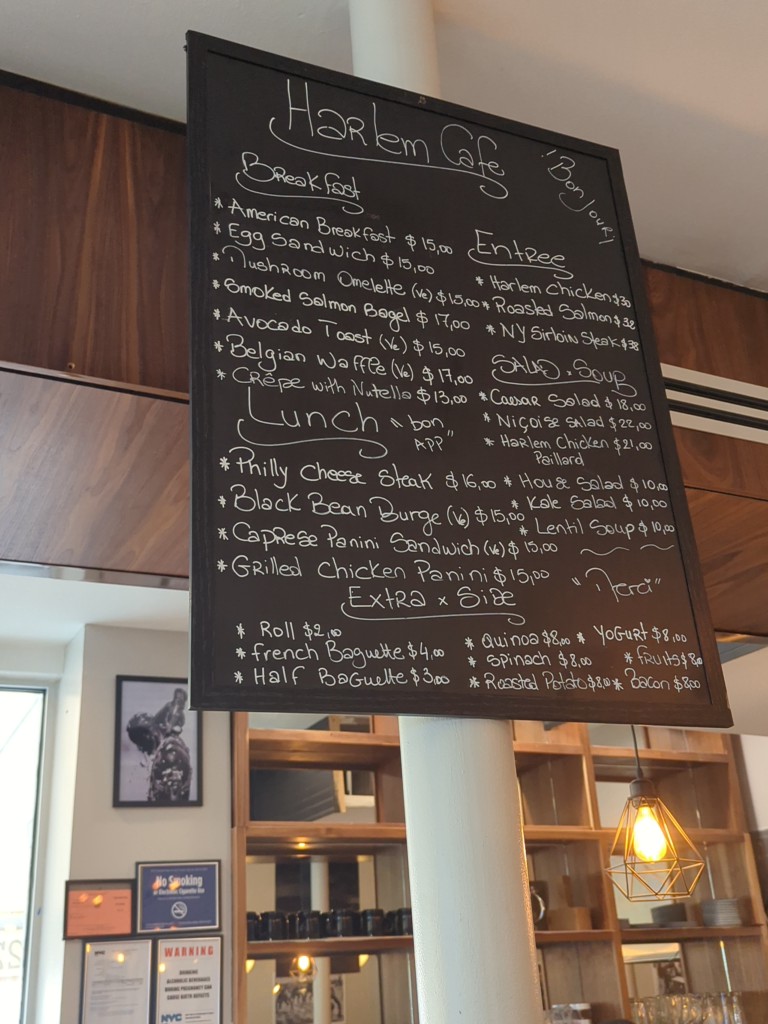 Harlem Cafe
¡Bonjour¡
Breakfast
* American Breakfast $15,00
* Egg Sandwich $15,00
* Mushroom Omelette (ve) $15,00
* Smoked Salmon Bagel $17,00
* Avocado Toast (ve) $15,00
* Belgian Waffle (ve) $17,00
* Crêpe with Nutella $13,00
Entree
* Harlem Chicken $30
* Roasted Salmon $32
* NY Sirloin Steak $38
Salad x Soup
* Caesar Salad $18,00
* Niçoise Salad $22,00
* Harlem Chicken $21,00
Paillard
* House Salad $10,00
* Kale Salad $10,00
* Lentil Soup $10,00
Lunch "bon
APP"
* Philly Cheese Steak $16,00
* Black Bean Burge (ve) $15,00
* Caprese Panini Sandwich (ve) $15,00
* Grilled Chicken Panini $15,00
"Merci"
Extra x Side
* Roll $2,00
* French Baguette $4,00
* Half Baguette $3,00
* Quinoa $8,00
* Spinach $8,00
* Roasted Potato $8,00
* Yogurt $8,00
* Fruits $8,00
* Bacon $8,00
No Smoking
or Electronic Cigarette Use
WARNING
DRINKING
ALCOHOLIC BEVERAGES
DURING PREGNANCY CAN
CAUSE BIRTH DEFECTS
NYC